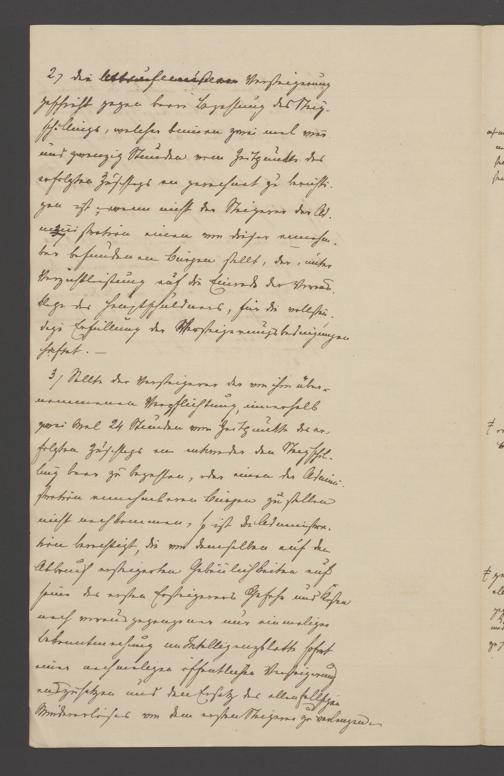 2) die Versteigerung
geschieht gegen baare Bezahlung des Steig-
schillings, welcher binnen zwei mal vier
und zwanzig Stunden vom Zeitpunkte des
erfolgten Zuschlags an gerechnet zu berichti-
gen ist, wenn nicht der Steigerer der Ad-
ministration einen von dieser annehm-
bar befundenen Bürgen stellt, der, unter
Verzichtleistung auf die Einrede der Voraus-
klage des Hauptschuldners, für die vollstän-
dige Erfüllung der Versteigerungsbedingungen
haftet. —
3) Sollte der Versteigerer der von ihm über-
nommenen Verpflichtung, innerhalb
zwei Mal 24 Stunden vom Zeitpunkte des er-
folgten Zuschlags an entweder den Steigschil-
ling baar zu bezahlen, oder einen der Admini-
stration annehmbaren Bürgen zu stellen
nicht nachkommen, so ist die Administra-
tion berechtigt, die von demselben auf den
Abbruch ersteigerten Gebäulichkeiten auf
seine des ersten Ersteigerers Gefahr und Kosten
nach vorausgegangener nur einmaliger
Bekanntmachung im Intelligenzblatte sofort
einer nochmaligen öffentlichen Versteigerung
auszusetzen und den Ersatz des allenfallsigen
Mindererlöses von dem ersten Steigerer zu verlangen.